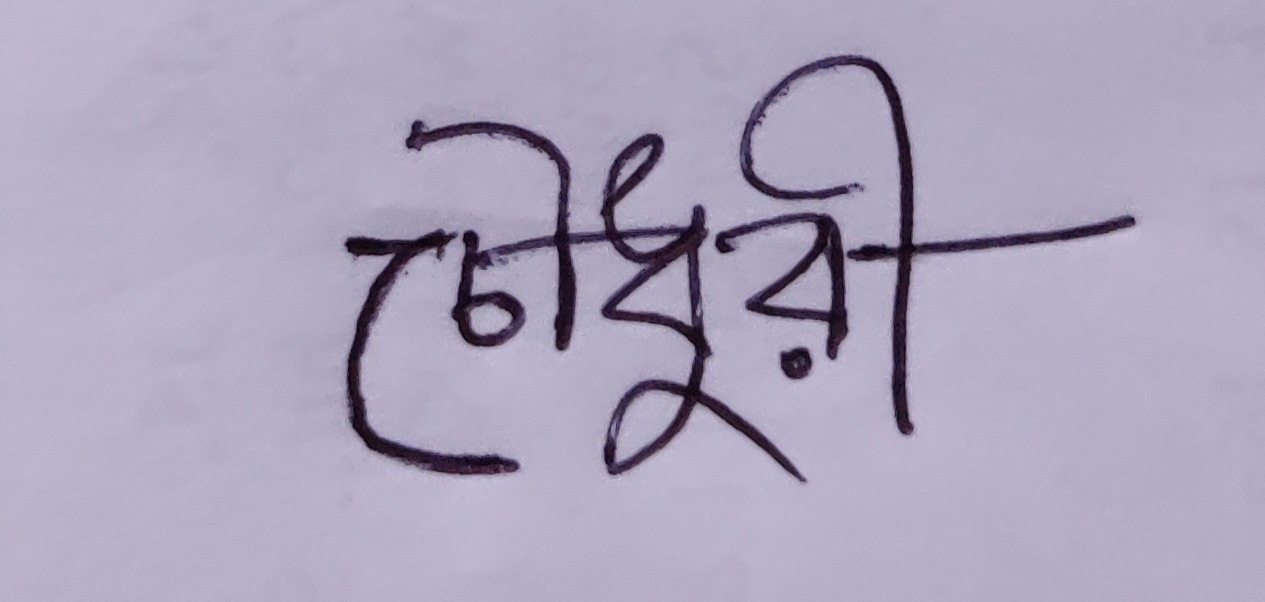 চৌধুরী